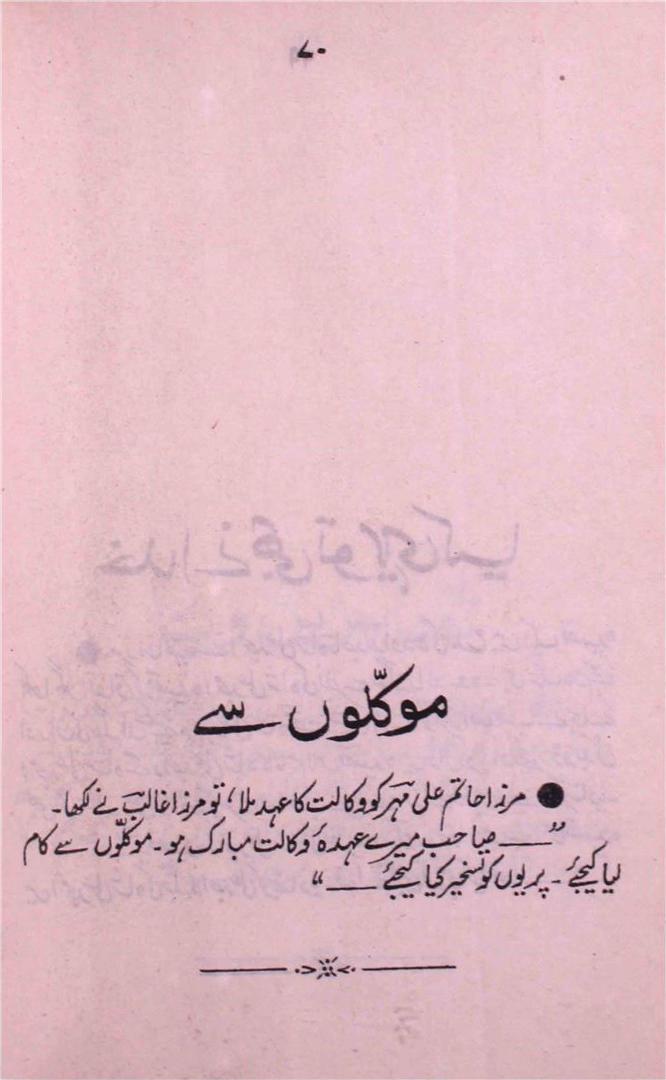 ۷۰
موکلّوں سے
● مرزا حاتم علی مہر کو وکالت کا عہد ملا، تو مرزا غالب نے لکھا۔
”—— صاحب میرے عہدۂ وکالت مبارک ہو۔ موکلّوں سے کام
لیا کیجئے۔ پریوں کو تسخیر کیا کیجئے ——“